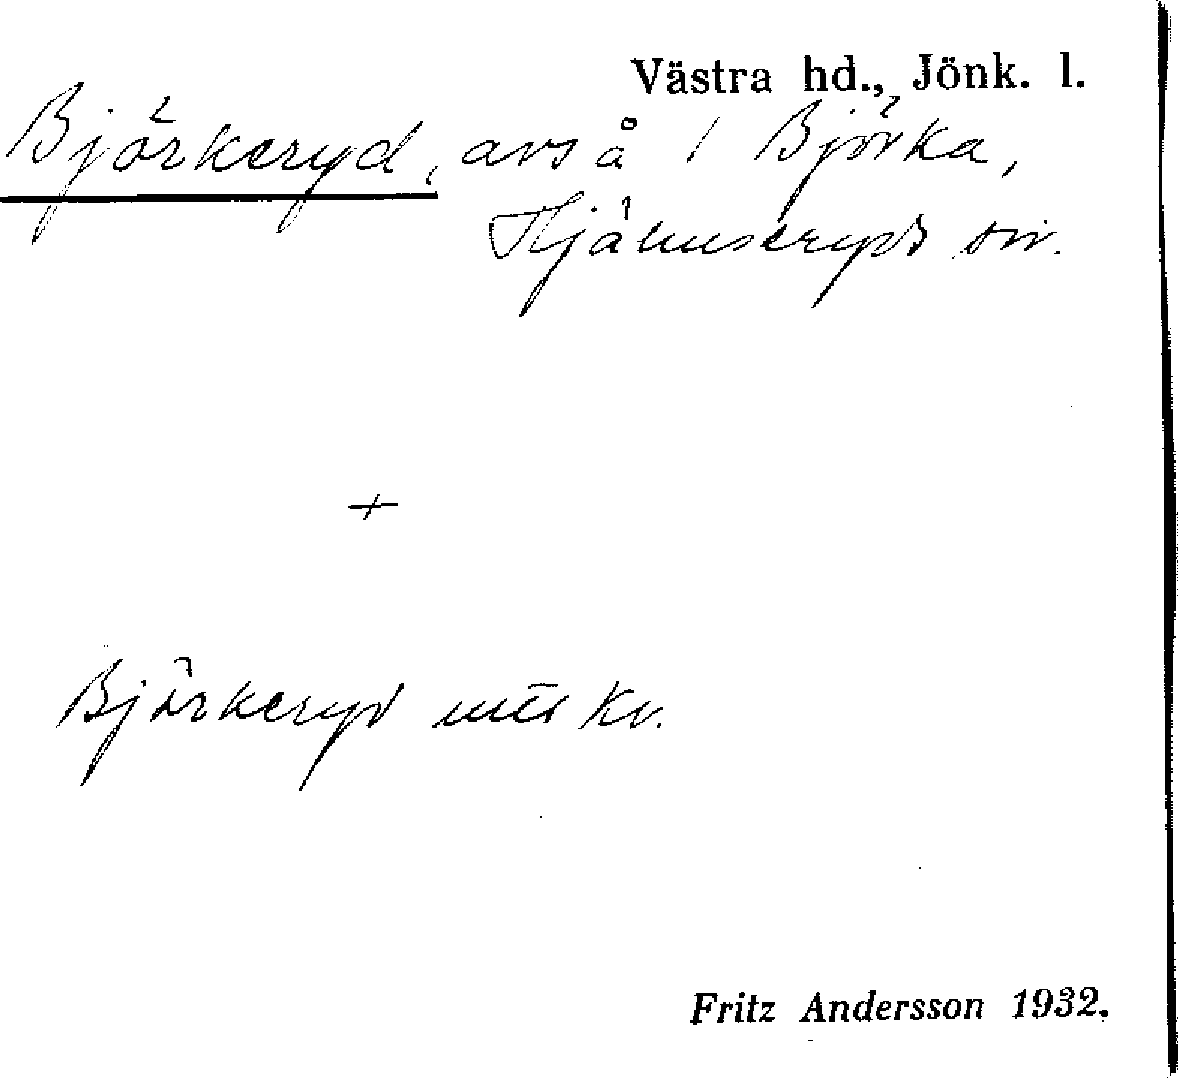 Västra hd., Jönk. l.
Björkeryd, avs å 1 Björka,
Hjälmseryds sn.
+
Björkeryd
Fritz Andersson 1932.